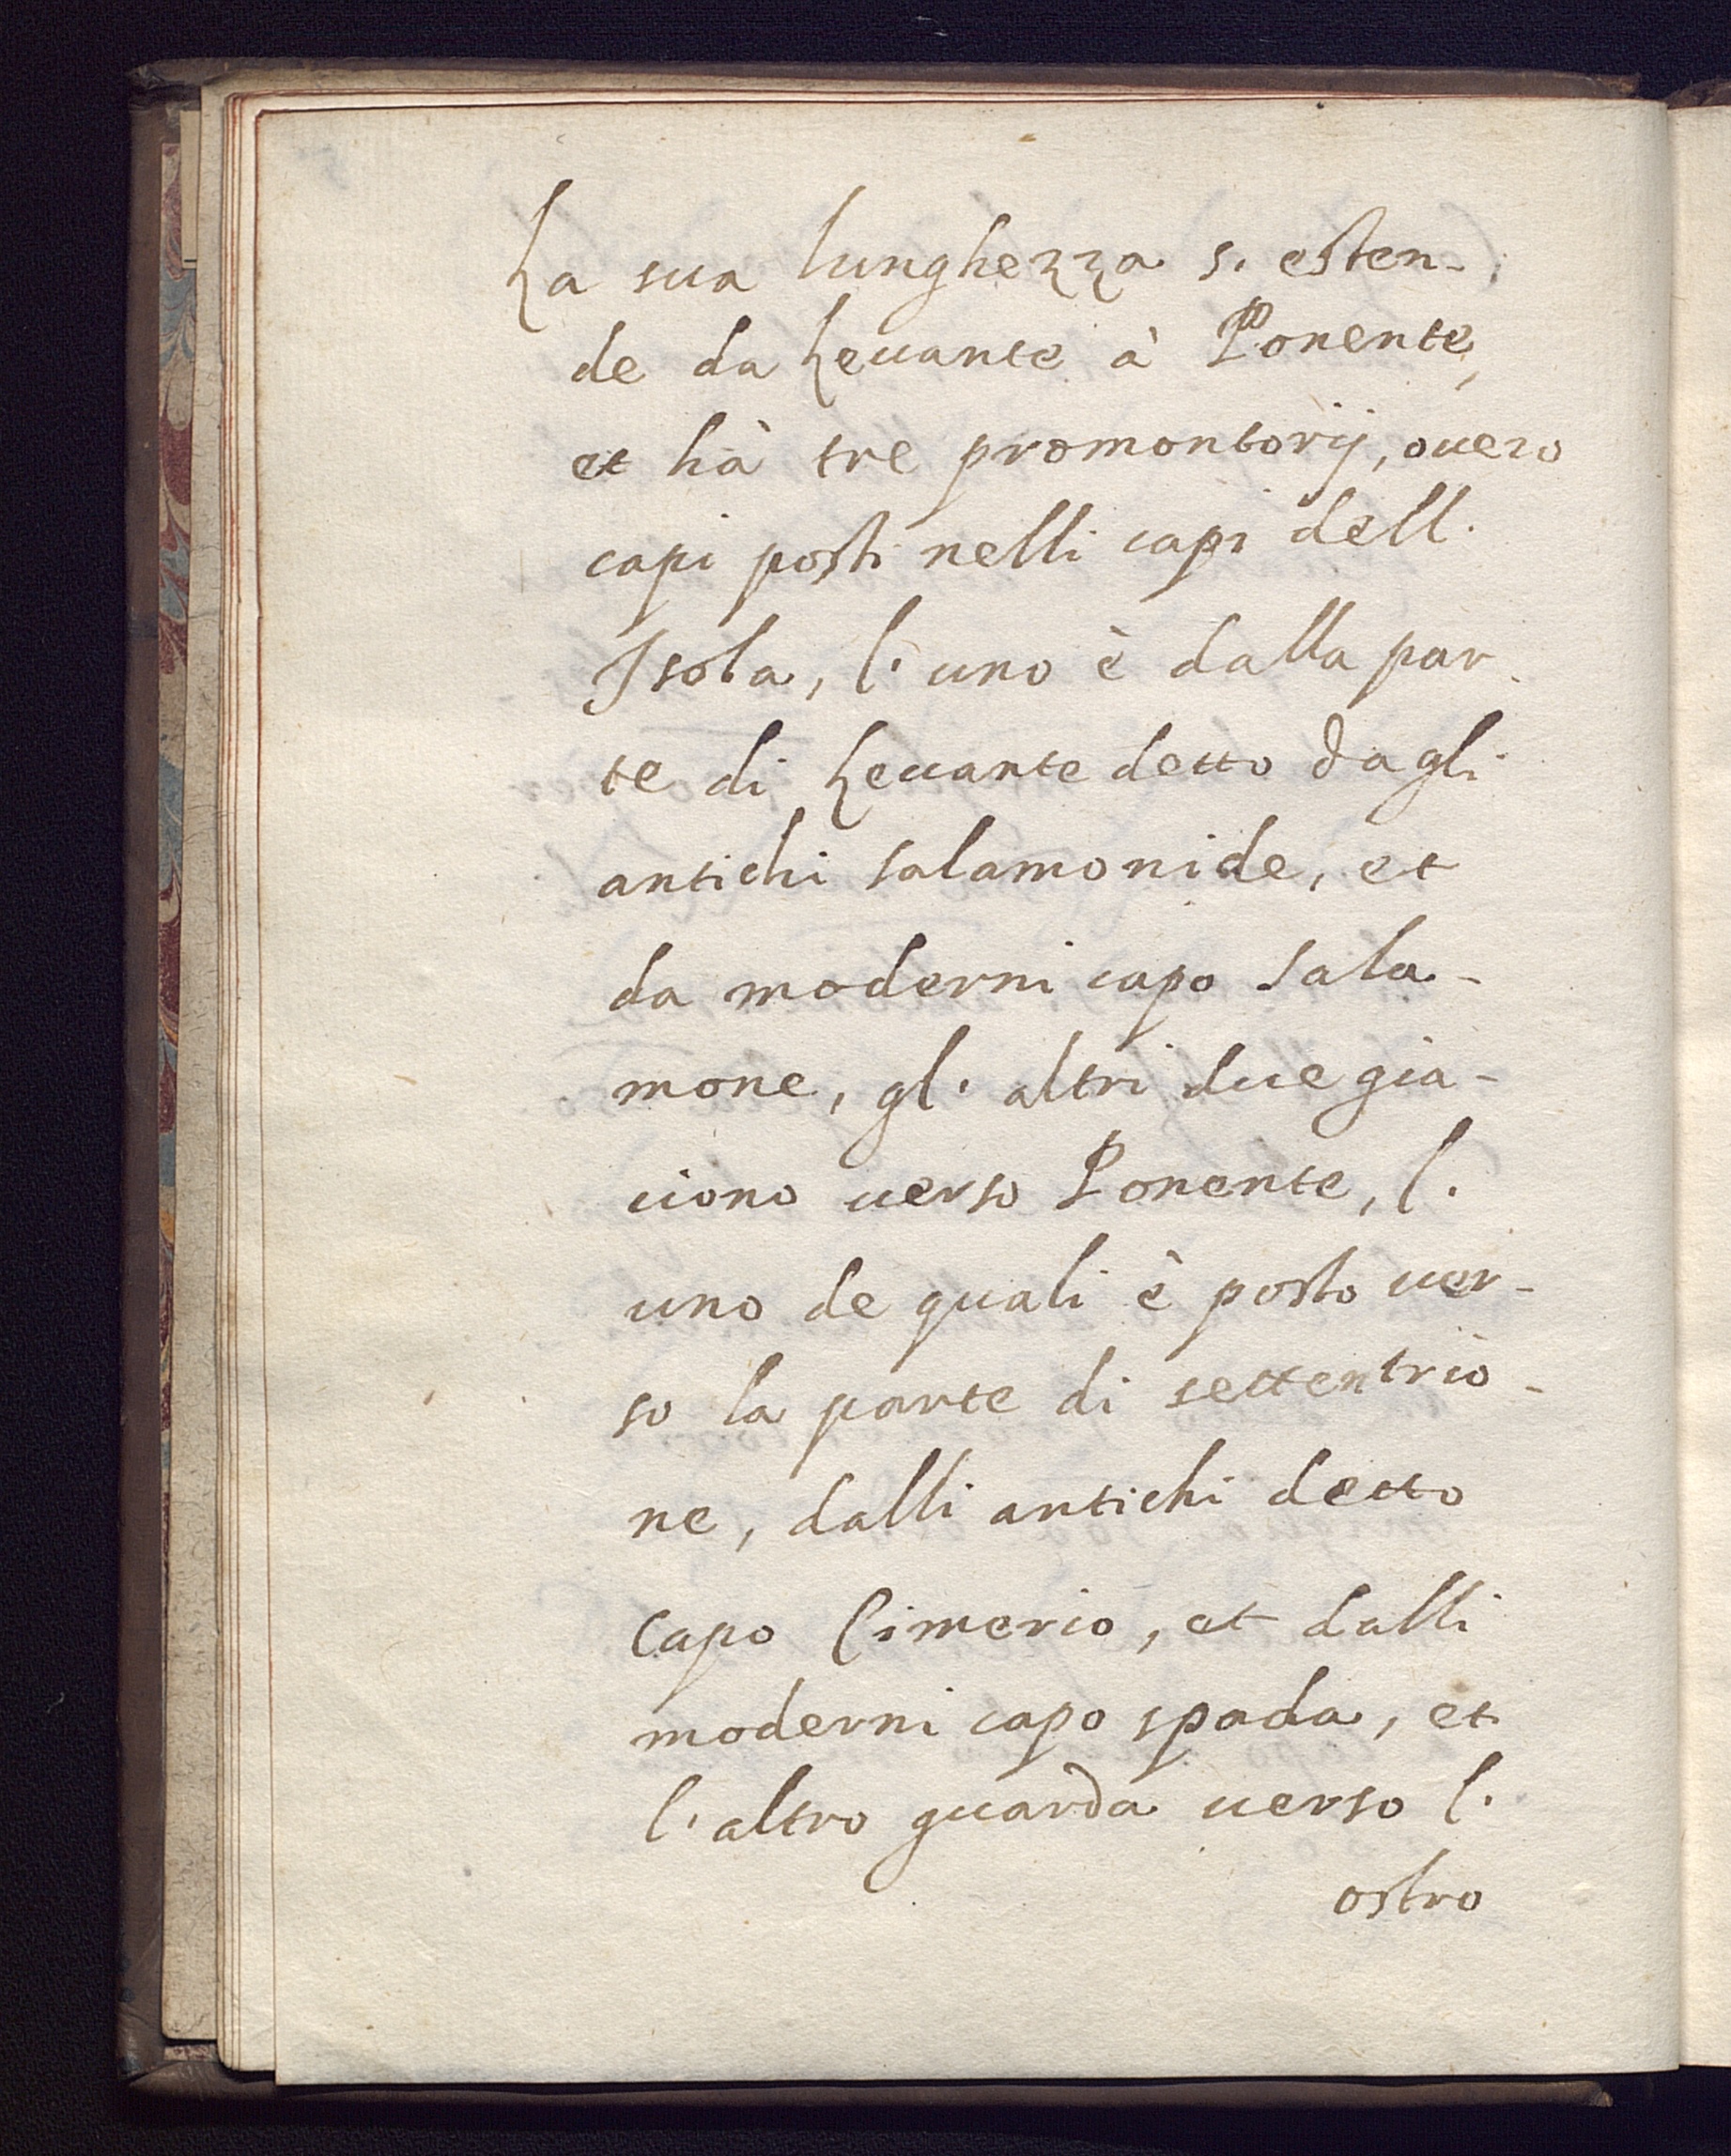 La sua lunghezza s. esten-
de da Leuante à Ponente,
et hà tre promontorij, ouero
capi posti nelli capi dell.
Isola, l. uno è dalla par-
te di Leuante detto dagli
antichi salamonide, et
da moderni capo sala-
mone, gl. altri due gia-
ciono uerso Ponente, l.
uno de quali è posto uer-
so la parte di settentrio-
ne, dalli antichi detto
Capo Cimerio, et dalli
moderni capo spada, et
l. altro guarda uerso l.
ostro